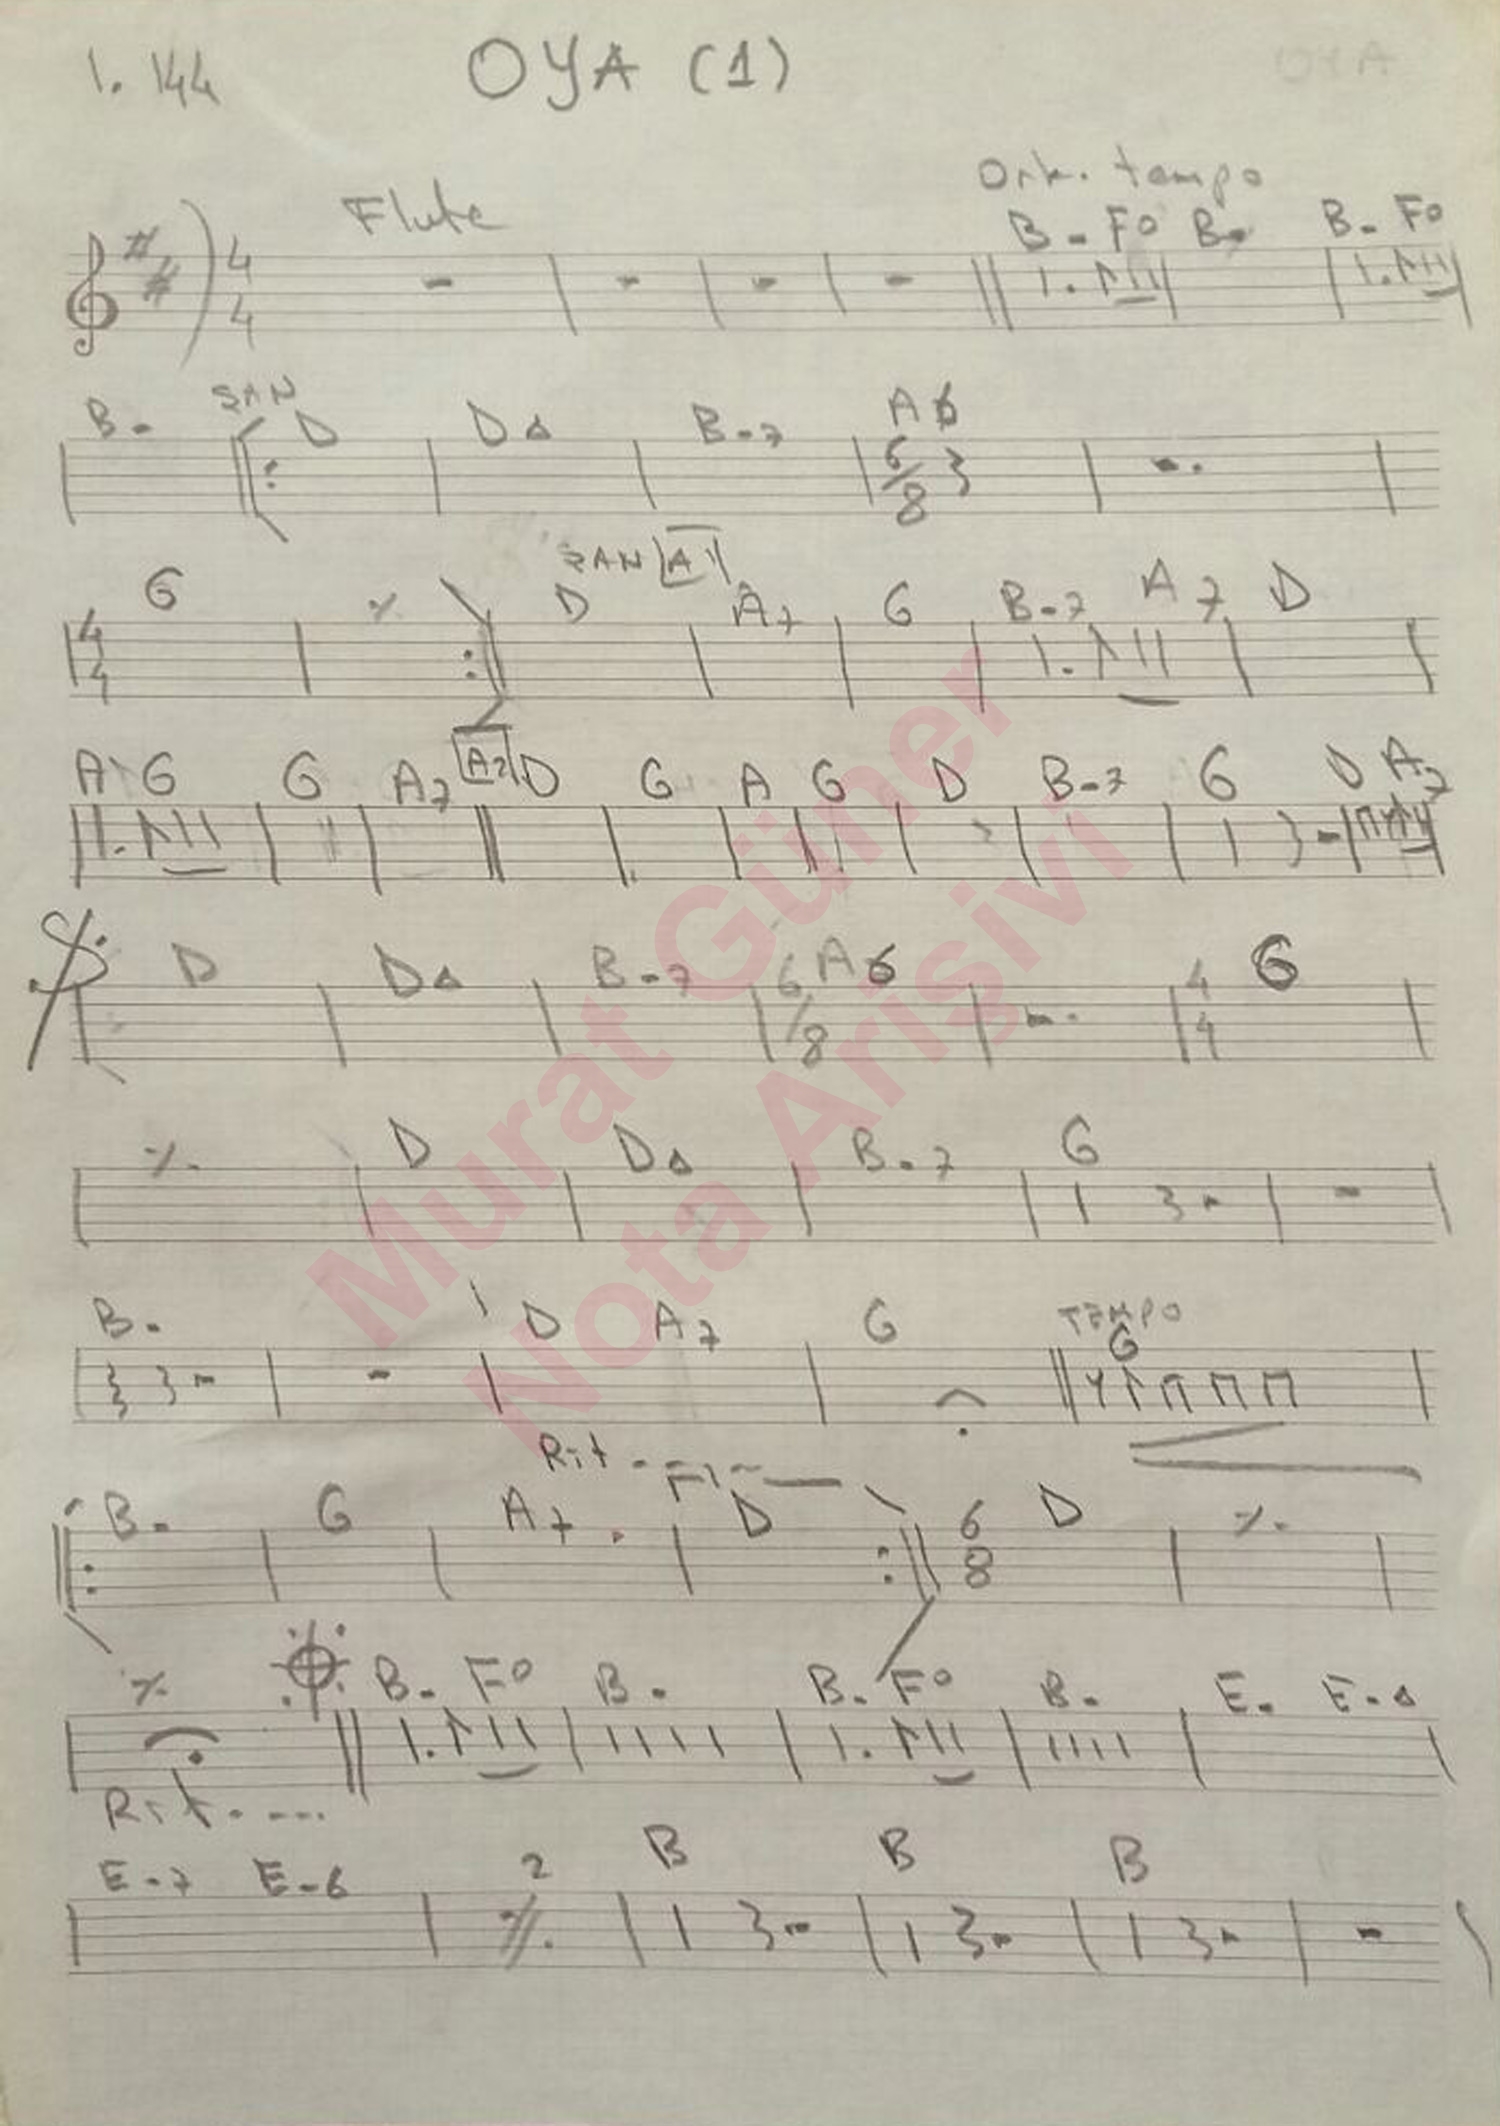 1. 144 OYA (1) OYA
Flute Ork. tempo
B- F° B- B- F°
4
4
B- ŞAN D D△ B-7 A6
6/8
ŞAN A1
G ٪ D A7 G B-7 A7 D
4
4
A G G A7 A2 D G A G D B-7 G D A7
D D△ B-7 6/8 A6 4/4 G
٪ D D△ B-7 G
B- D A7 G TEMPO G
Rit
B- G A7 D 6/8 D ٪
٪ B- F° B- B- F° B- E- E-△
Rit
E-7 E-6 2 B B B
Murat Güner
Nota Arişivi